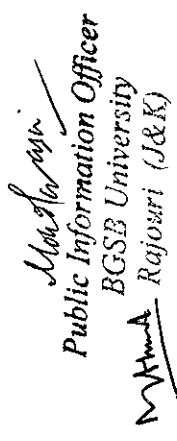 Public Information Officer
BGSB University
Rajouri (J&K)